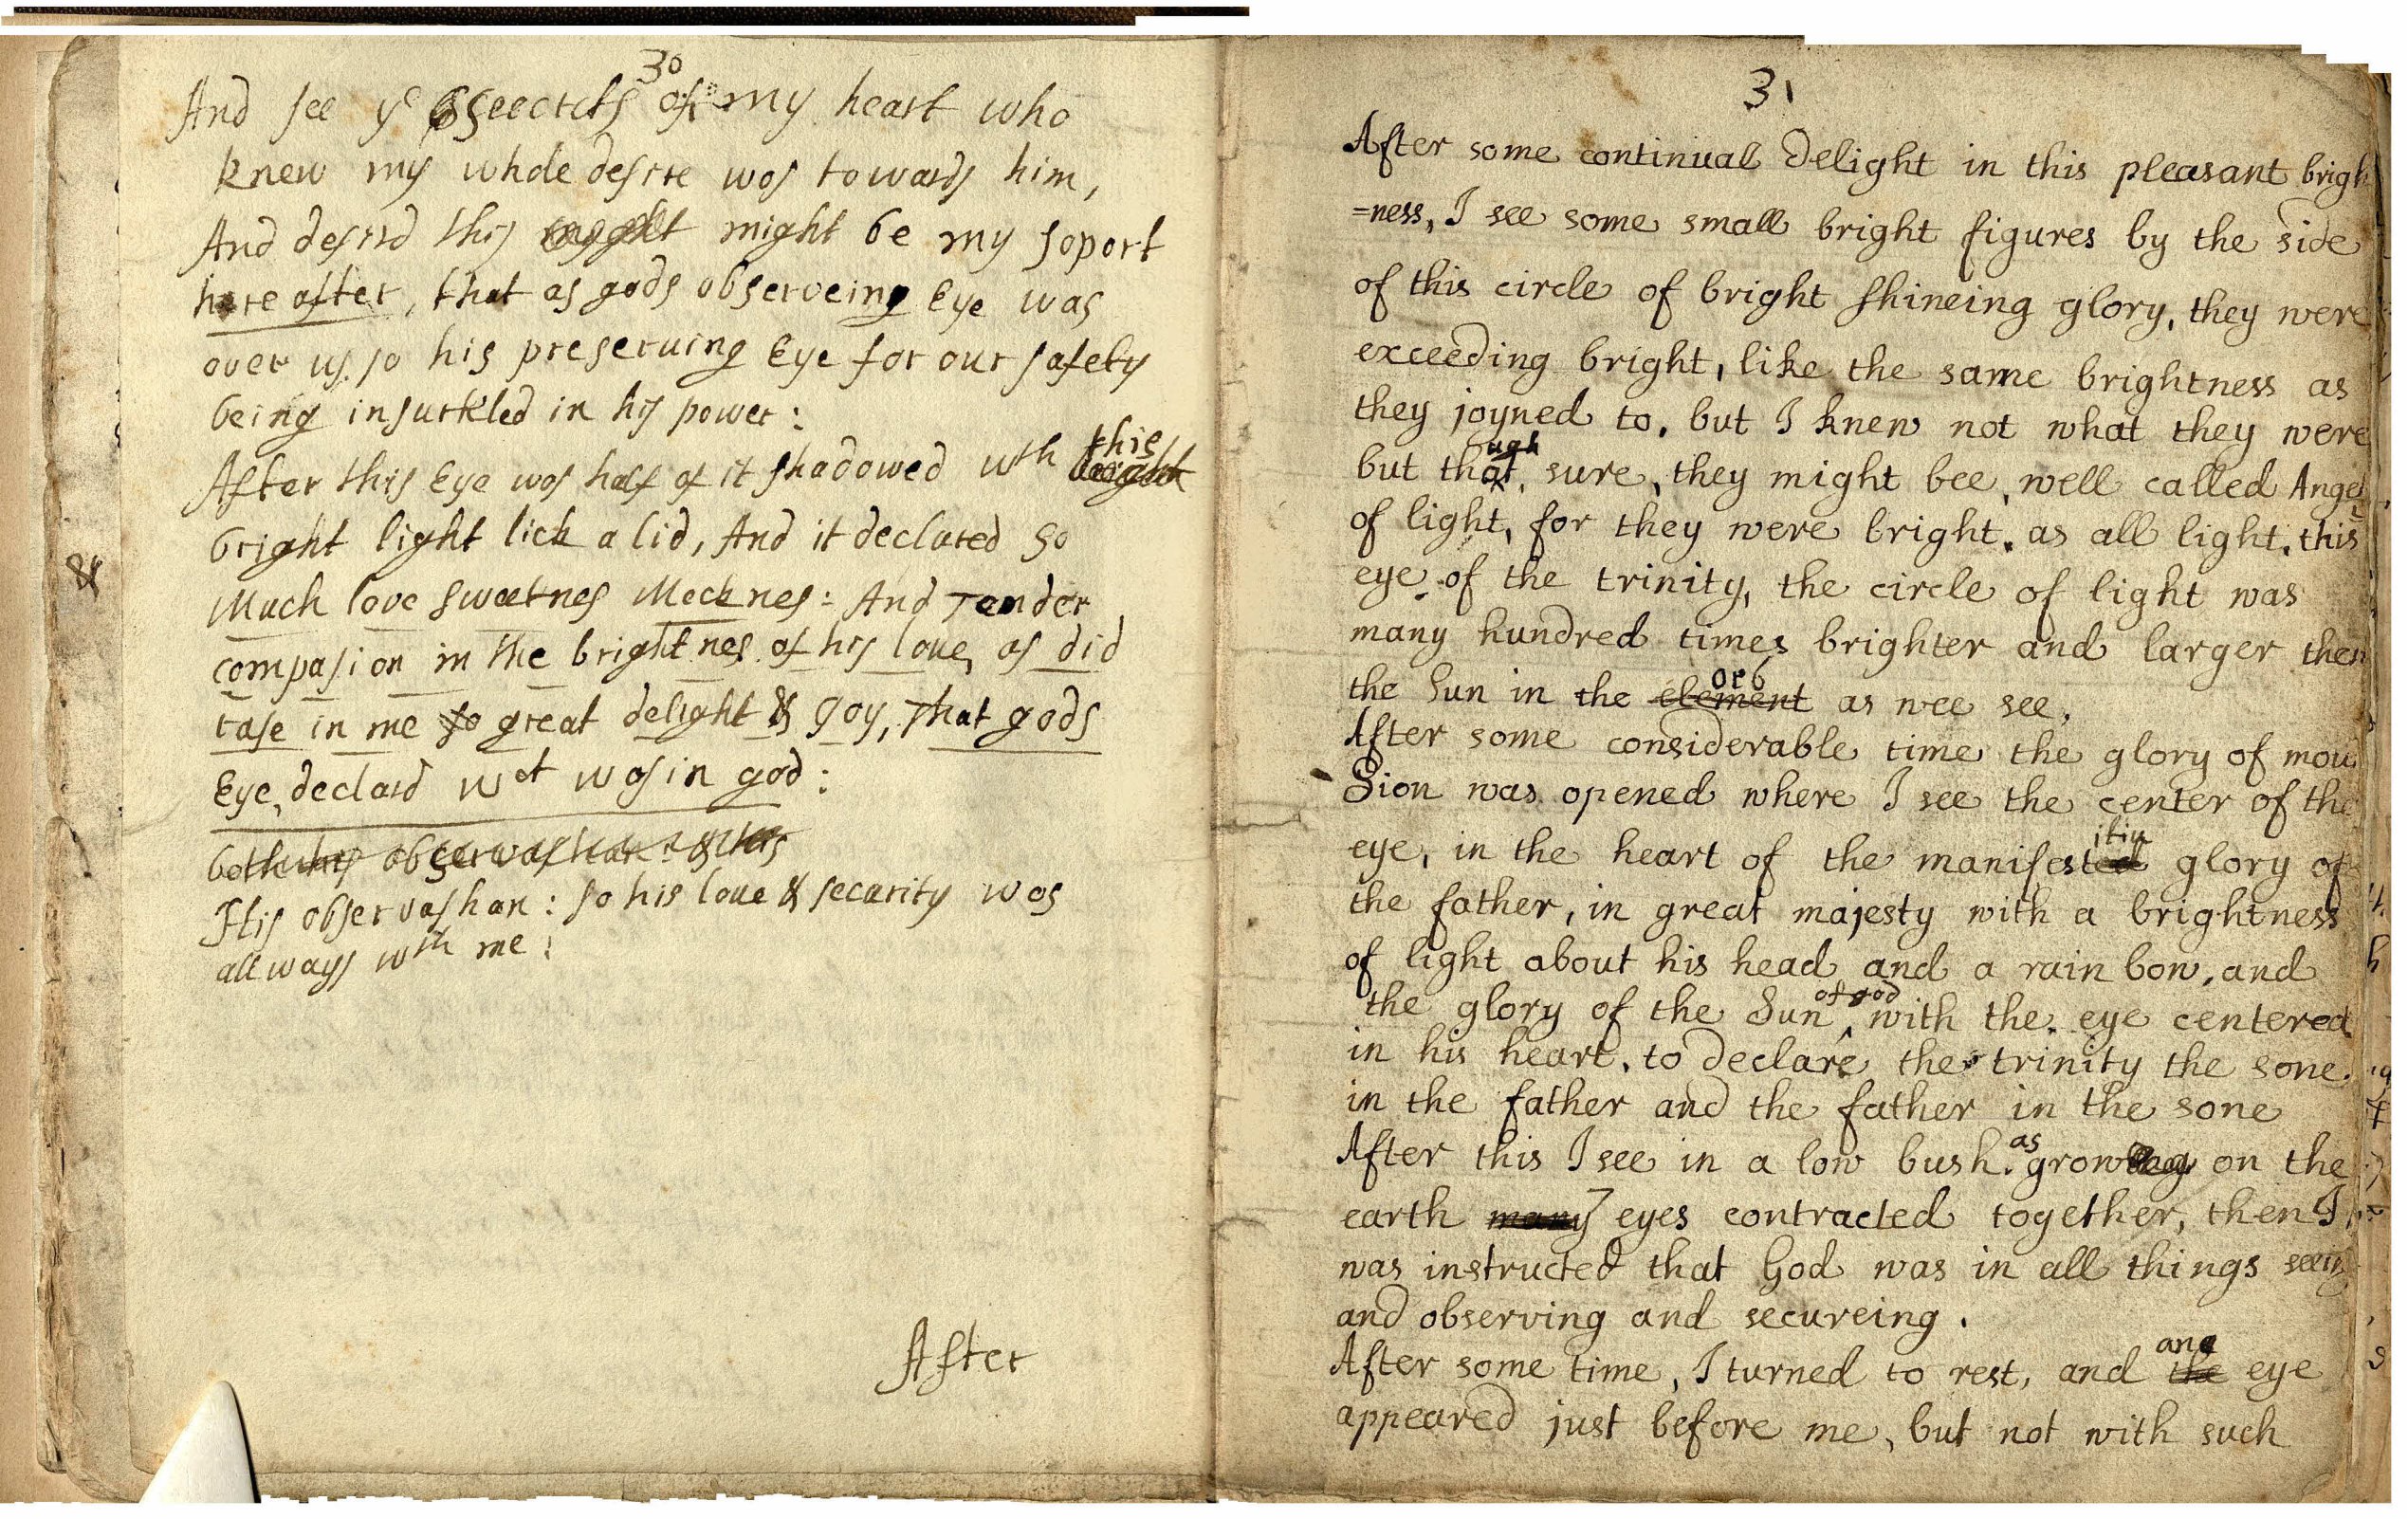 30
And see ye seecrets of my heart who
knew my whole desire wos towards him,
And desird this might be my soport
here after, that as gods observeing Eye was
over us so his preserving Eye for our safety
being insurkled in his power:
After this Eye wos half of it shadowed wth this
bright light lick a lid, And it declared so
Much love sweetnes Mecknes: And Tender
compasion in the brightnes of his love, as did
rase in me so great delight & Joy, That gods
Eye, declard wot wos in god:
His observashan: so his love & security wos
allways wth me:
After
31
After some continual delight in this pleasant brigh
=ness, I see some small bright figures by the side
of this circle of bright shineing glory, they were
exceeding bright, like the same brightness as
they joyned to, but I knew not what they were
but though sure, they might bee, well called Angel
of light, for they were bright, as all light, this
eye of the trinity, the circle of light was
many hundred times brighter and larger then
the Sun in the element orb as wee see,
After some considerable time the glory of mou
Sion was opened where I see the center of the
eye, in the heart of the manifested glory of
the father, in great majesty with a brightness
of light about his head and a rain bow, and
the glory of the Sun of god with the eye centered
in his heart, to declare the trinity the sone
in the father and the father in the sone
After this I see in a low bush as growing on the
earth many 7 eyes contracted together, then I
was instructed that God was in all things seeing
and observing and secureing.
After some time, I turned to rest, and the ane eye
appeared just before me, but not with such